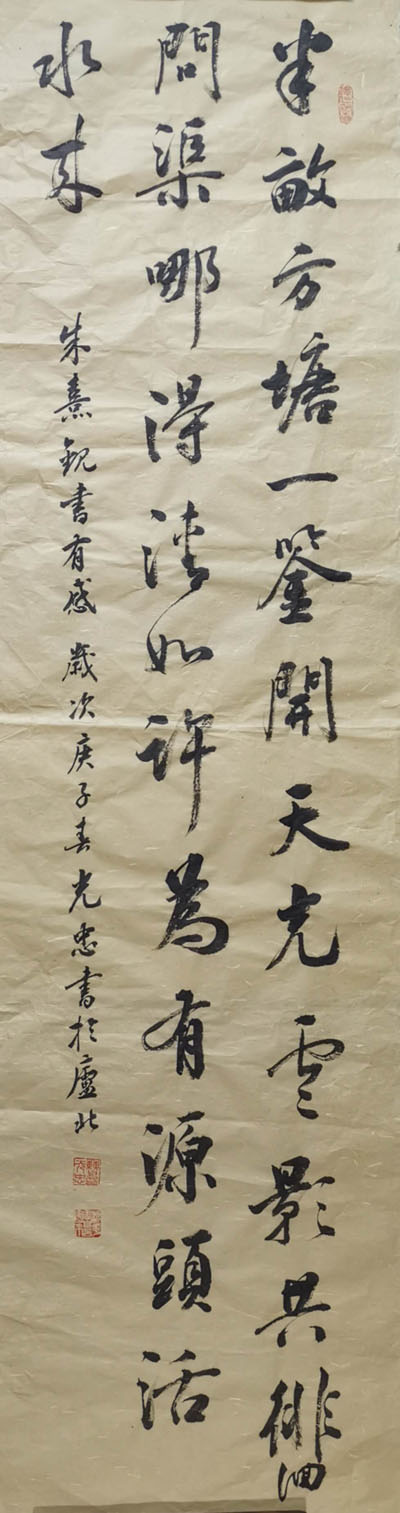 半畝方塘一鑒開天光雲影共徘徊
問渠哪得清如許為有源頭活
水來
朱熹觀書有感 歲次庚子春光忠書於廬北